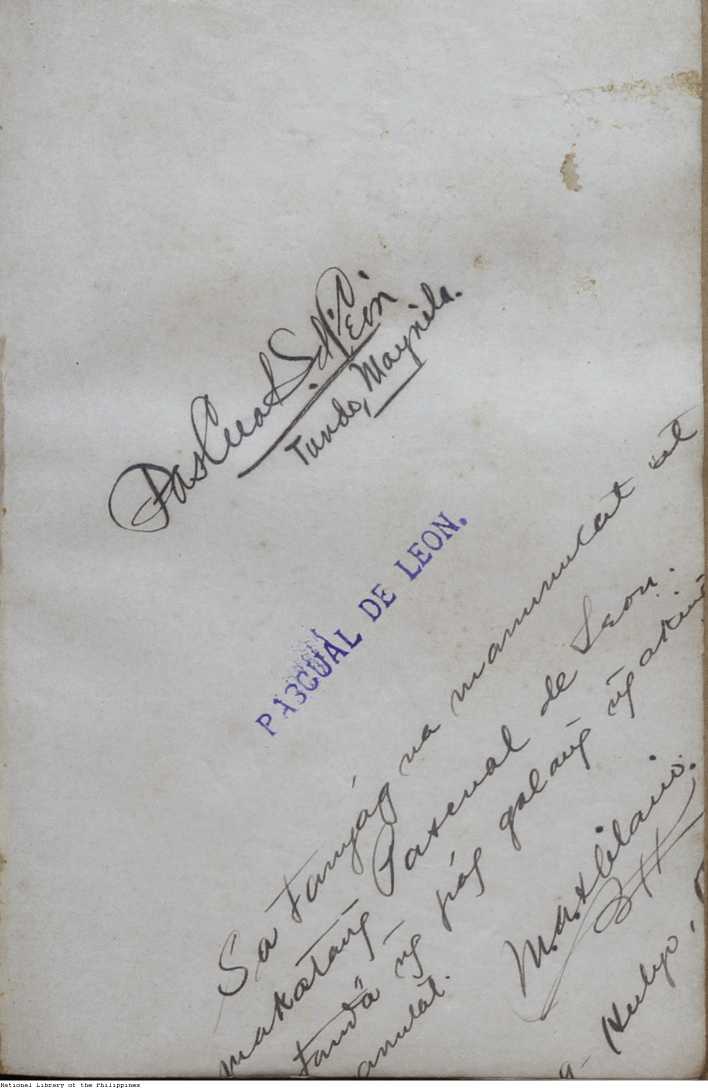 Pascual S. de León
Tundo, Maynila.
PASCUAL DE LEON.
Sa tanyág na manunulat at
makatang̃ Pascual de Leon.
tandâ ng̃ pág galang ng̃
anulát.
Hulyo,
National Library of the Philippines